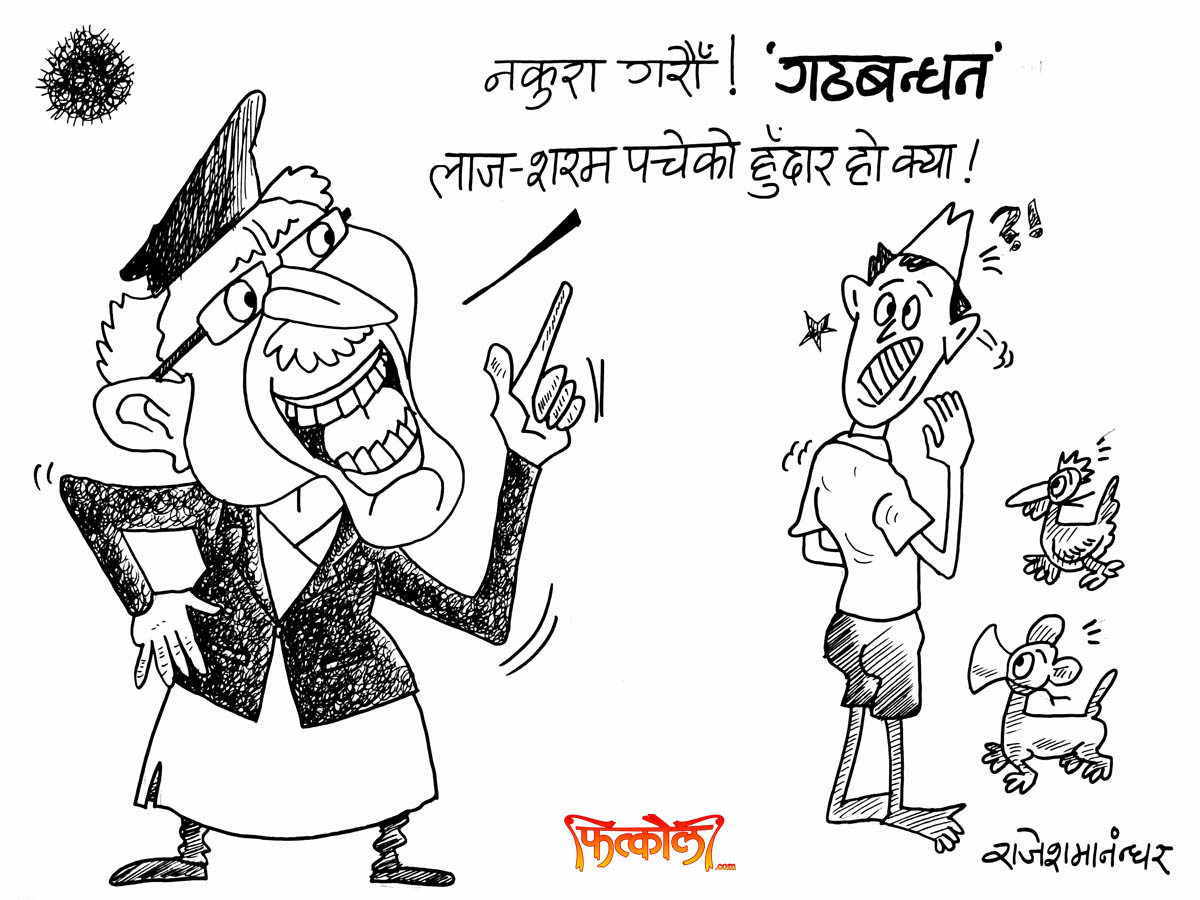 नकुरा गरौँ! 'गठबन्धन'
लाज-शरम पचेको हुँदार हो क्या!
?!
फत्कौल
.com
राजेशमानंन्धर